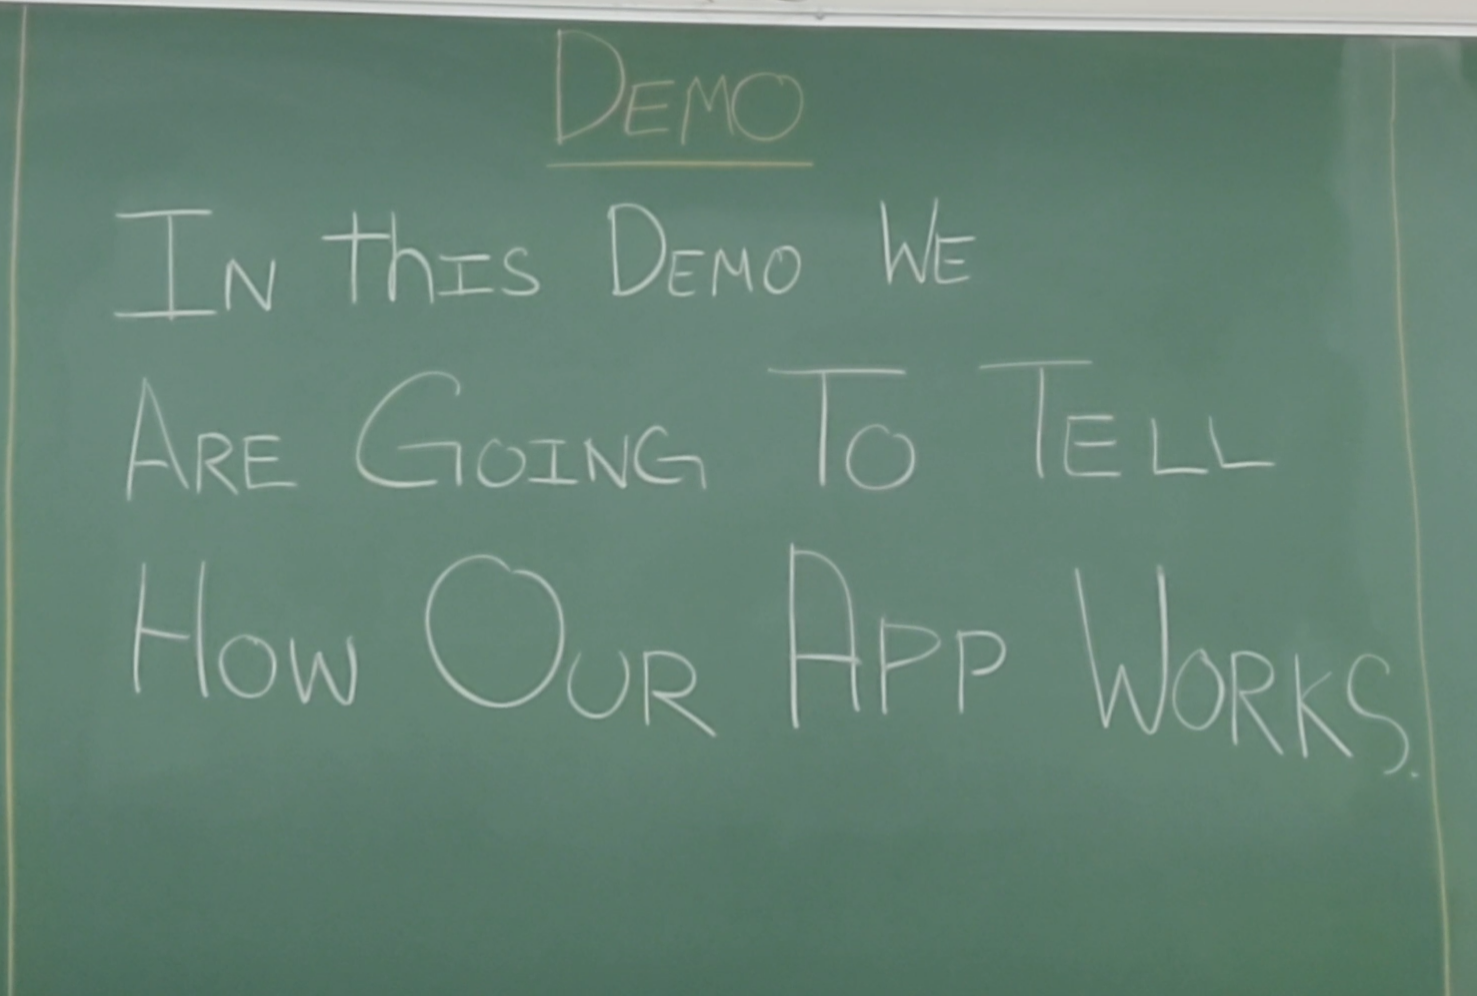 DEMO
IN thIS DEMO WE
ARE GOING TO TELL
HOW OUR APP WORKS.